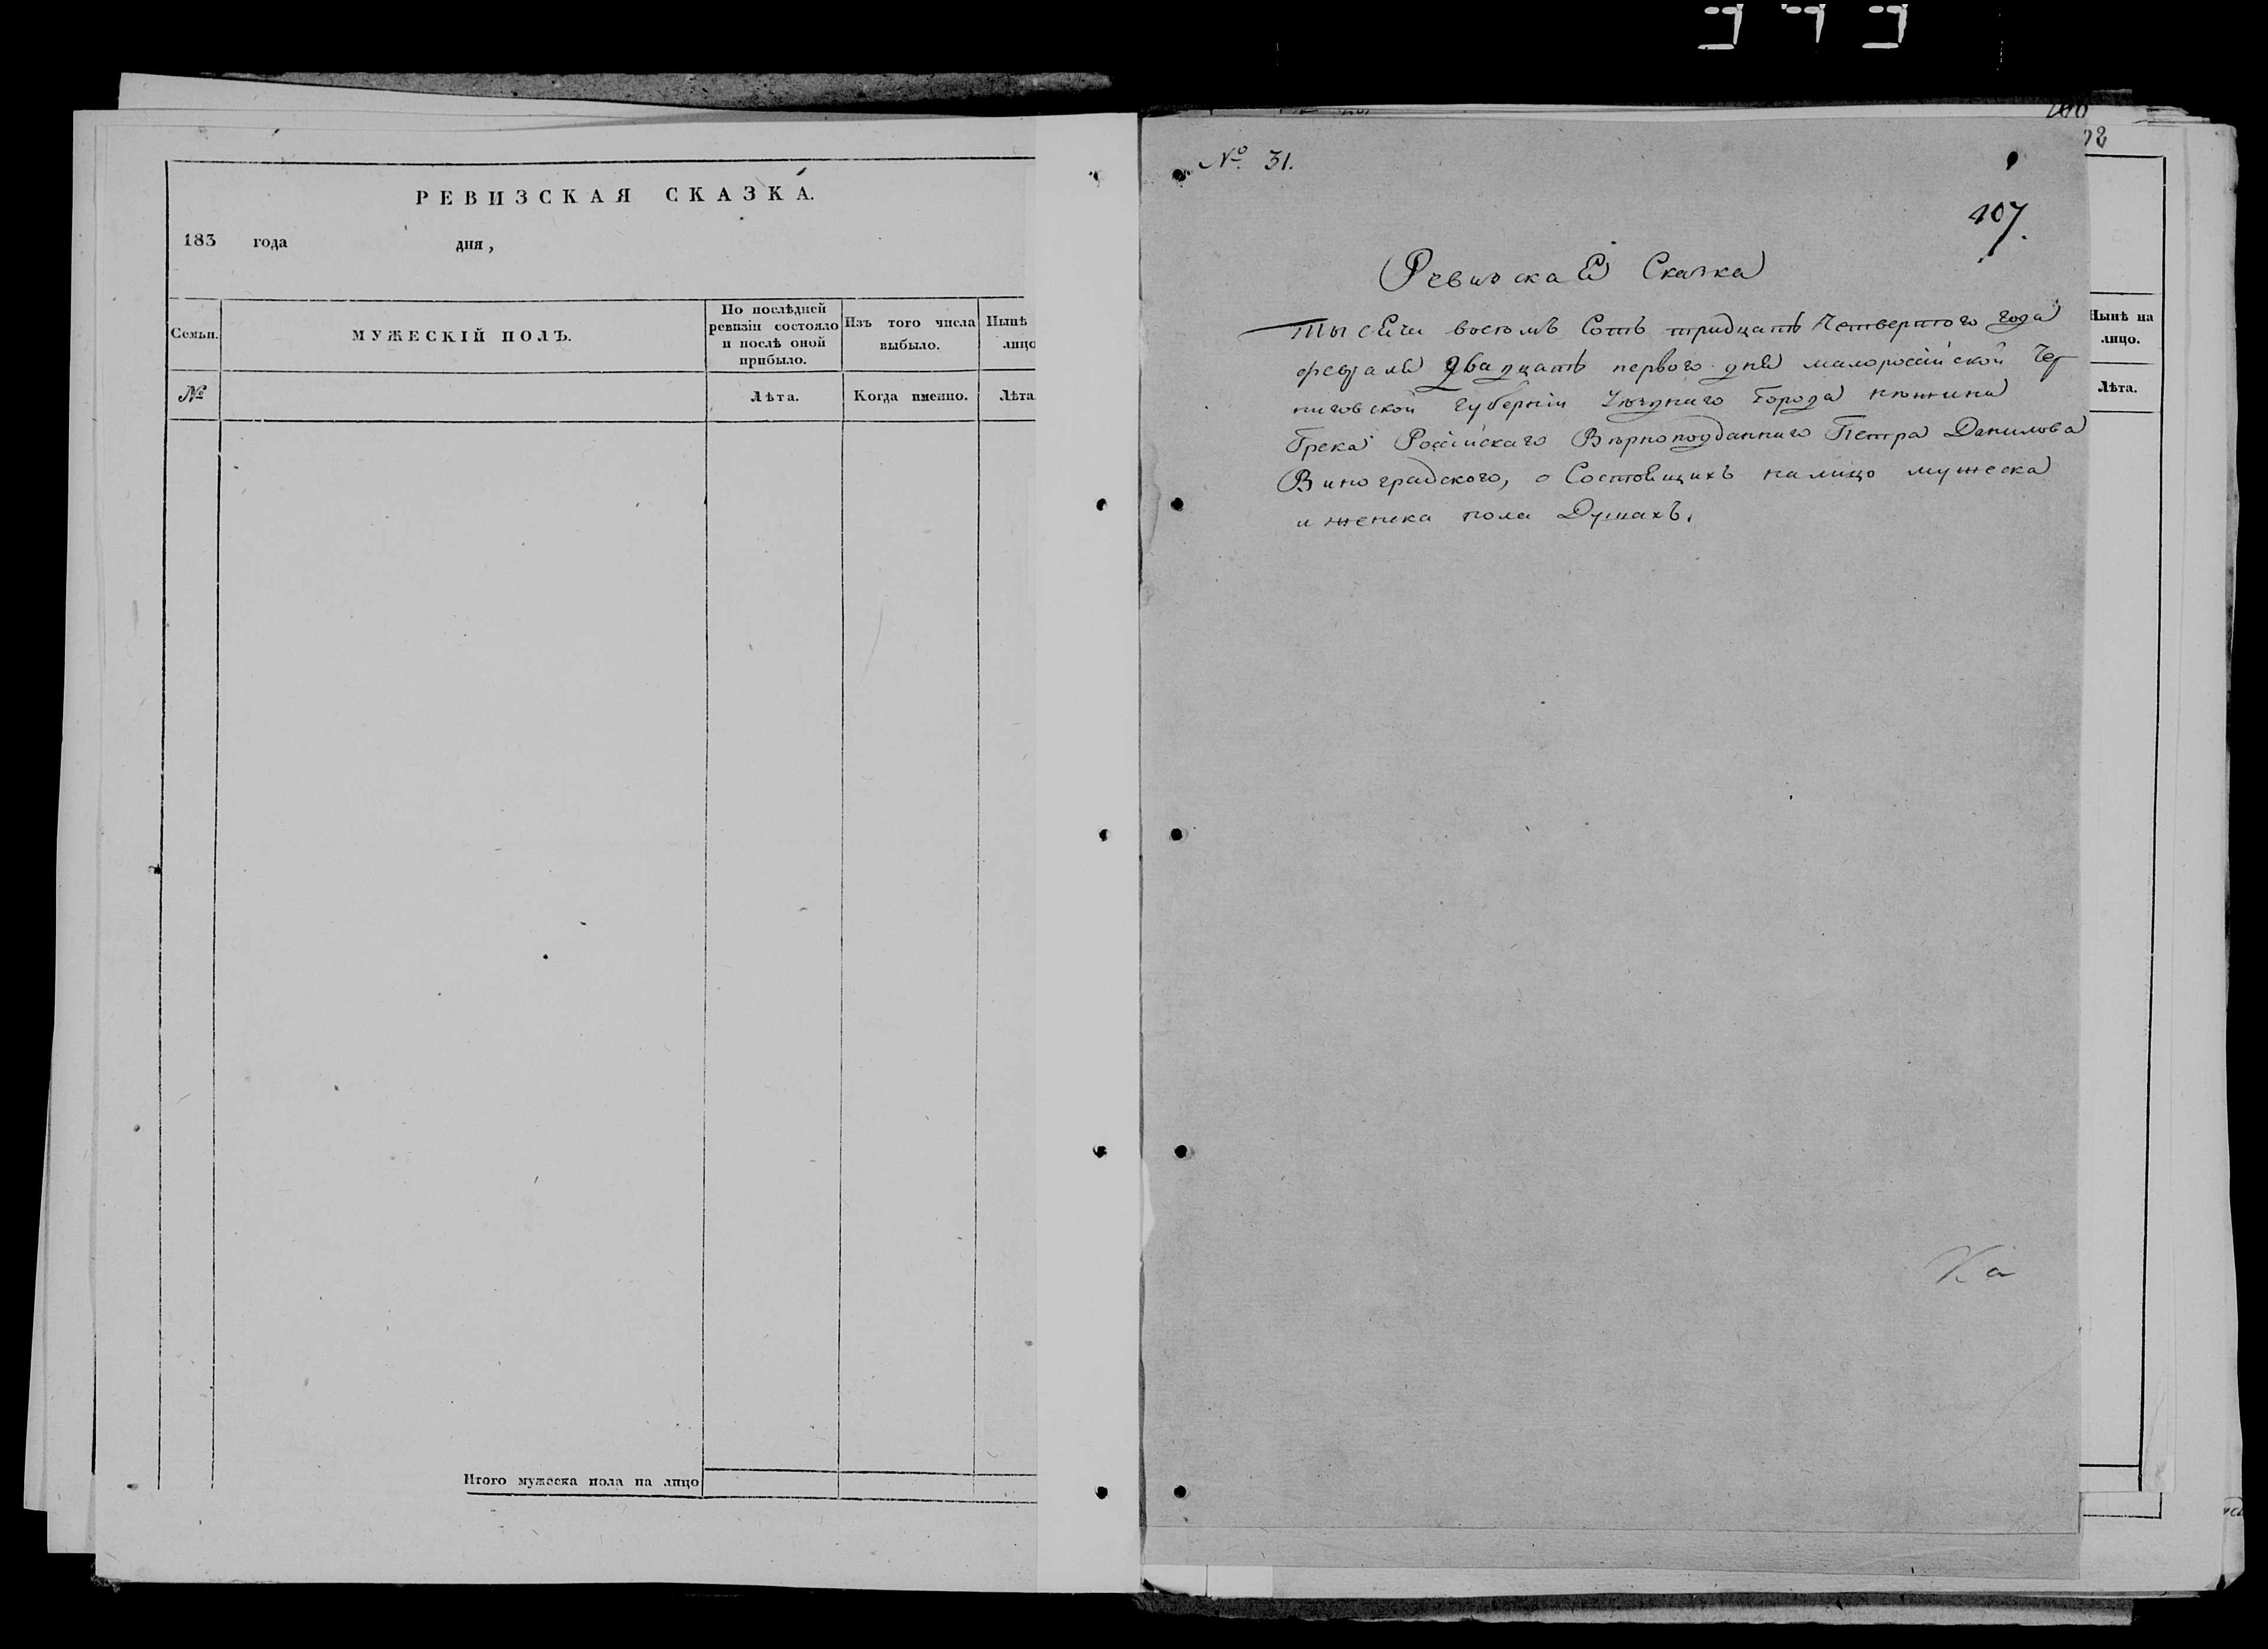 РЕВИЗСКАЯ СКАЗКА.
183 года дня,
Семьи.
МУЖЕСКІЙ ПОЛЪ.
По послѣдней
ревизіи состояло
и послѣ оной
прибыло.
Изъ того числа
выбыло.
Нынѣ
лицо
№
Лѣта.
Когда именно.
Лѣта
Итого мужеска пола на лицо
№ 31.
107.
Ревизская Сказка
Тысяча восемъ Сотъ тридцать Четвертого года
февраля двадцать первого дня малороссійской Чер
ниговской Губерніи Уѣзднаго города нѣжина
Грека Россійскаго Вѣрноподданнаго Петра Данилова
Виноградского, о Состоящихъ налицо мужеска
и женска пола Душахъ.
Нынѣ на
лицо.
Лѣта.